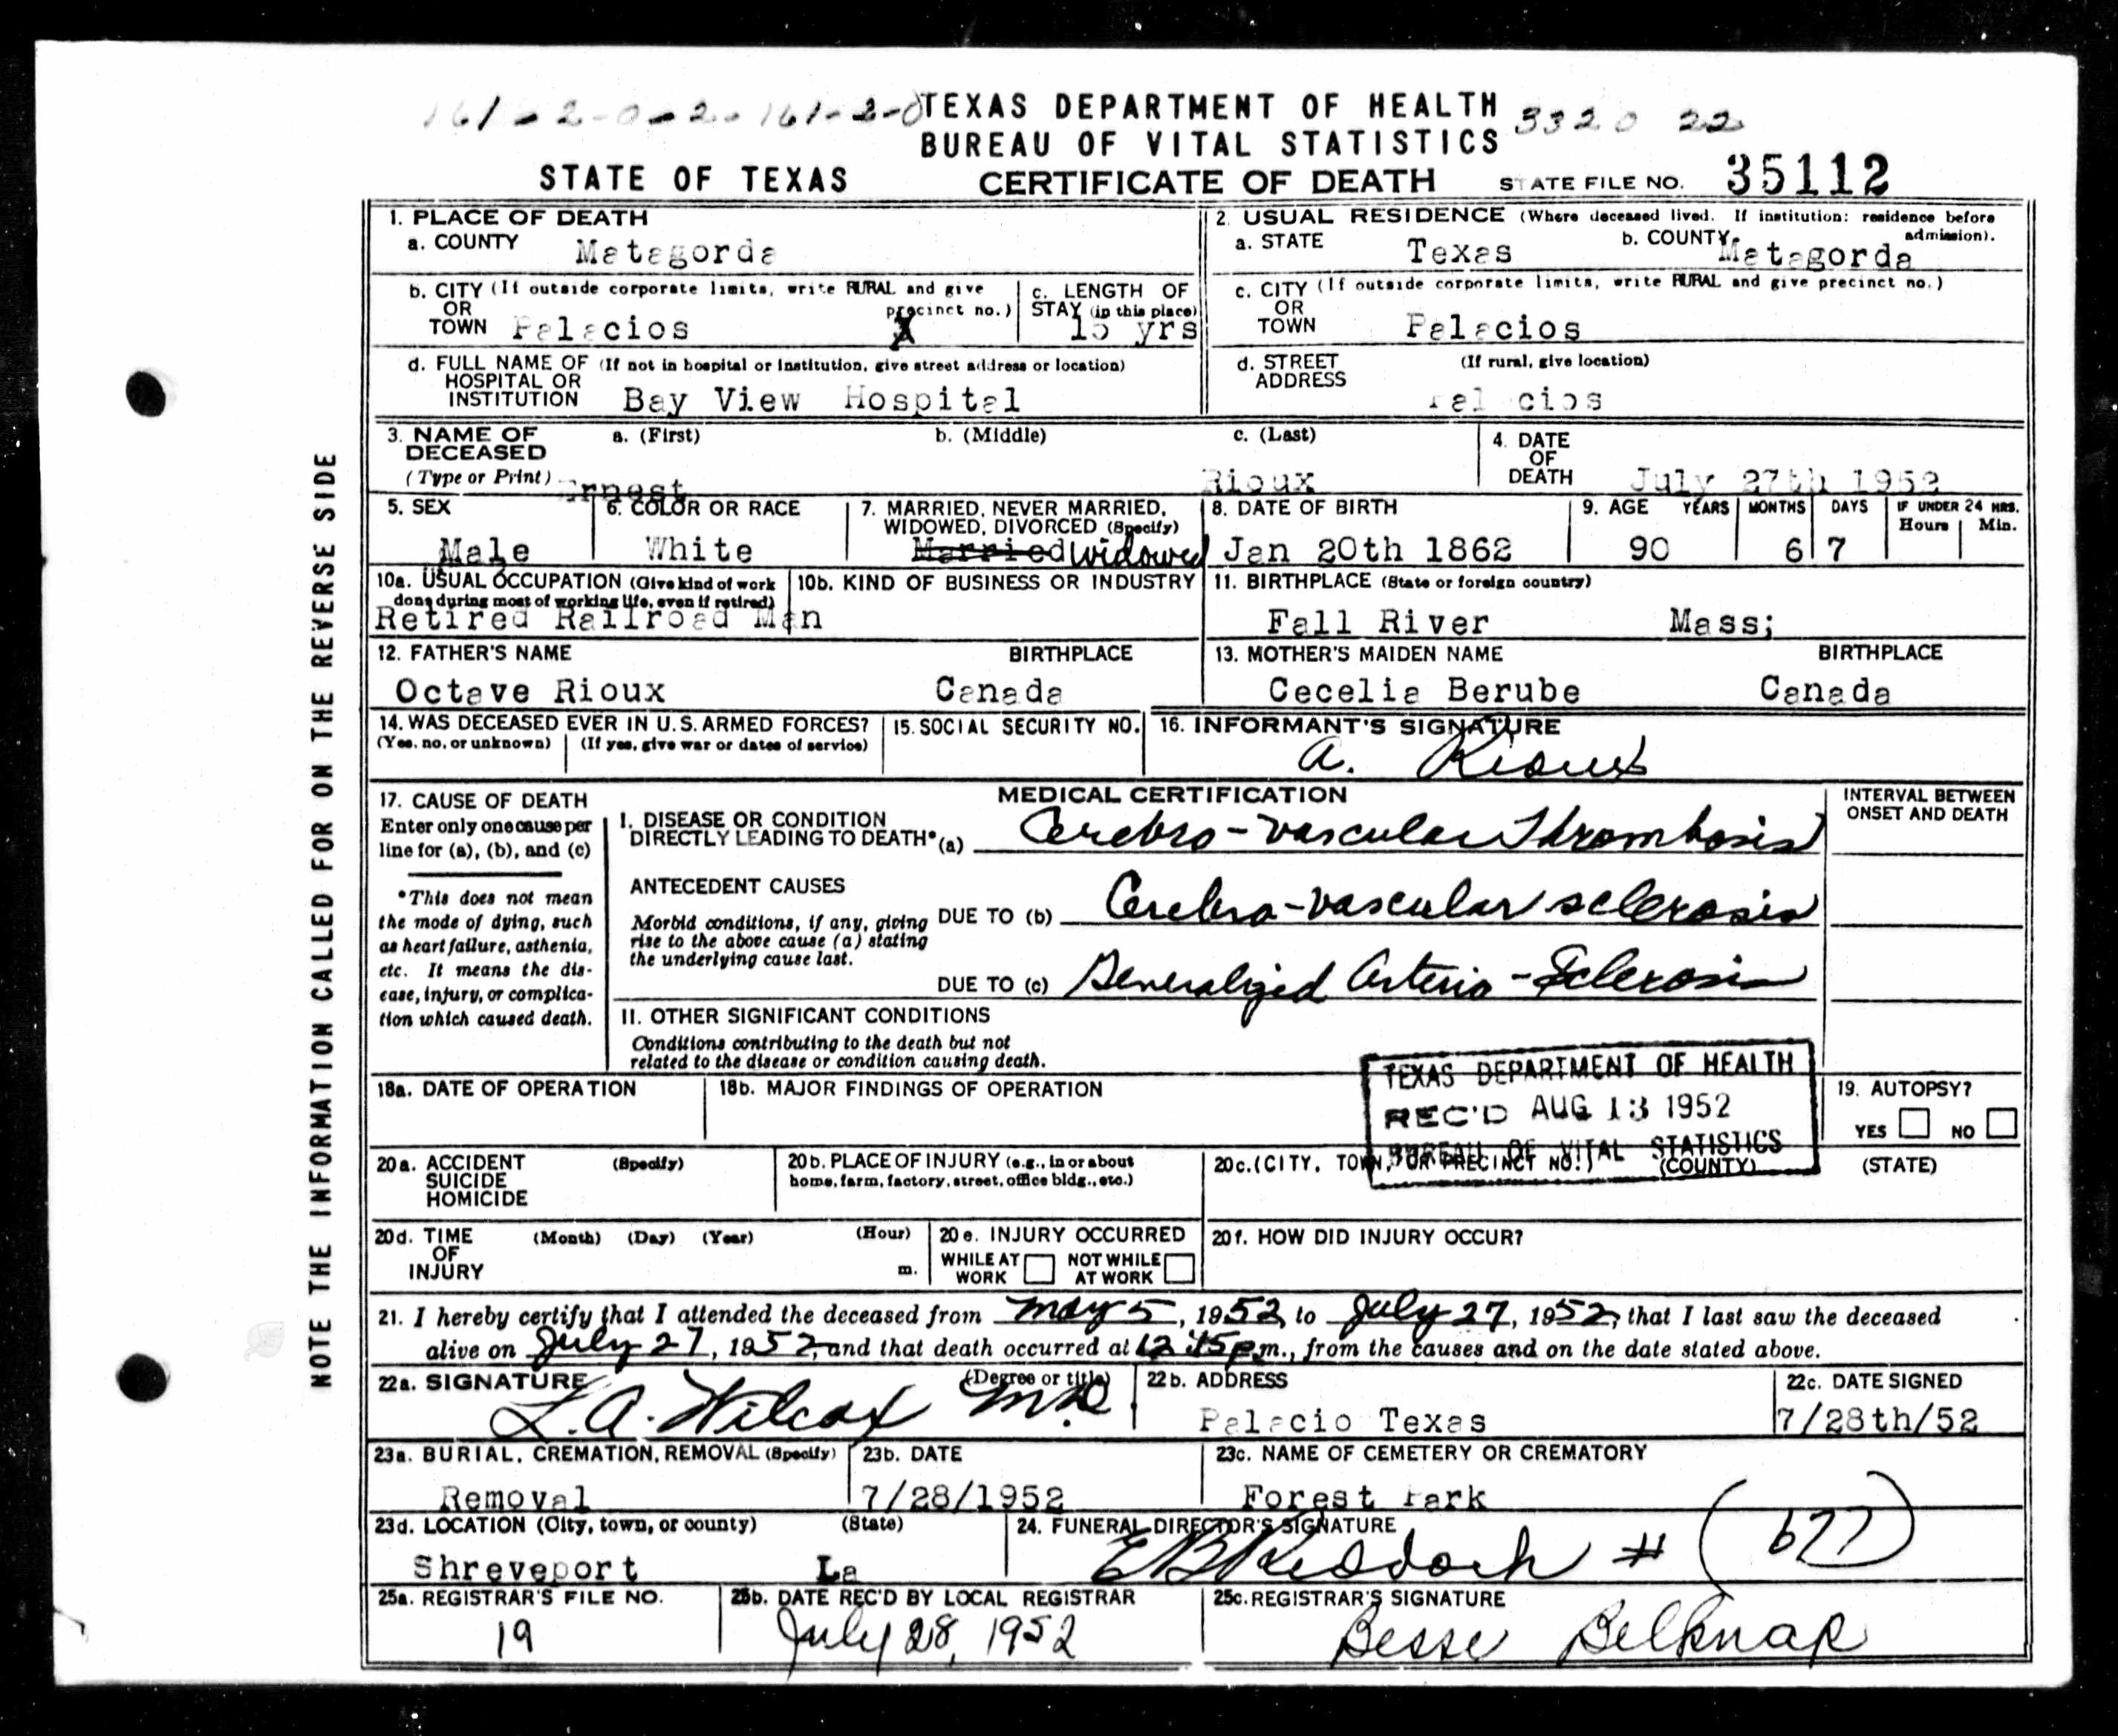 161-2-0-2-161-2-0 TEXAS DEPARTMENT OF HEALTH 3320 22
BUREAU OF VITAL STATISTICS
STATE OF TEXAS CERTIFICATE OF DEATH STATE FILE NO. 35112
NOTE THE INFORMATION CALLED FOR ON THE REVERSE SIDE
1. PLACE OF DEATH
a. COUNTY Matagorda
2. USUAL RESIDENCE (Where deceased lived. If institution: residence before admission).
a. STATE Texas b. COUNTY Matagorda
b. CITY (If outside corporate limits, write RURAL and give precinct no.)
OR
TOWN Palacios X
c. LENGTH OF
STAY (in this place)
15 yrs
c. CITY (If outside corporate limits, write RURAL and give precinct no.)
OR
TOWN Palacios
d. FULL NAME OF (If not in hospital or institution, give street address or location)
HOSPITAL OR
INSTITUTION Bay View Hospital
d. STREET (If rural, give location)
ADDRESS
Palacios
3. NAME OF a. (First) b. (Middle) c. (Last)
DECEASED
(Type or Print) Ernest Rioux
4. DATE
OF
DEATH July 27th 1952
5. SEX
Male
6. COLOR OR RACE
White
7. MARRIED, NEVER MARRIED,
WIDOWED, DIVORCED (Specify)
Married Widowed
8. DATE OF BIRTH
Jan 20th 1862
9. AGE YEARS MONTHS DAYS IF UNDER 24 HRS.
Hours Min.
90 6 7
10a. USUAL OCCUPATION (Give kind of work
done during most of working life, even if retired)
Retired Railroad Man
10b. KIND OF BUSINESS OR INDUSTRY
11. BIRTHPLACE (State or foreign country)
Fall River Mass;
12. FATHER'S NAME BIRTHPLACE
Octave Rioux Canada
13. MOTHER'S MAIDEN NAME BIRTHPLACE
Cecelia Berube Canada
14. WAS DECEASED EVER IN U.S. ARMED FORCES?
(Yes, no, or unknown) (If yes, give war or dates of service)
15. SOCIAL SECURITY NO.
16. INFORMANT'S SIGNATURE
A. Rioux
17. CAUSE OF DEATH
Enter only one cause per
line for (a), (b), and (c)
*This does not mean
the mode of dying, such
as heart failure, asthenia,
etc. It means the dis-
ease, injury, or complica-
tion which caused death.
MEDICAL CERTIFICATION
INTERVAL BETWEEN
ONSET AND DEATH
I. DISEASE OR CONDITION
DIRECTLY LEADING TO DEATH* (a) Cerebro-vascular Thrombosis
ANTECEDENT CAUSES
Morbid conditions, if any, giving
rise to the above cause (a) stating
the underlying cause last.
DUE TO (b) Cerebro-vascular sclerosis
DUE TO (c) Generalized Arterio-Sclerosis
II. OTHER SIGNIFICANT CONDITIONS
Conditions contributing to the death but not
related to the disease or condition causing death.
TEXAS DEPARTMENT OF HEALTH
REC'D AUG 13 1952
BUREAU OF VITAL STATISTICS
18a. DATE OF OPERATION
18b. MAJOR FINDINGS OF OPERATION
19. AUTOPSY?
YES NO
20a. ACCIDENT (Specify)
SUICIDE
HOMICIDE
20b. PLACE OF INJURY (e.g., in or about
home, farm, factory, street, office bldg., etc.)
20c. (CITY, TOWN, OR PRECINCT NO.) (COUNTY) (STATE)
20d. TIME (Month) (Day) (Year) (Hour)
OF
INJURY m.
20e. INJURY OCCURRED
WHILE AT WORK NOT WHILE AT WORK
20f. HOW DID INJURY OCCUR?
21. I hereby certify that I attended the deceased from May 5, 1952 to July 27, 1952, that I last saw the deceased
alive on July 27, 1952, and that death occurred at 12:45 p m., from the causes and on the date stated above.
22a. SIGNATURE (Degree or title)
L.A. Wilcox M.D.
22b. ADDRESS
Palacio Texas
22c. DATE SIGNED
7/28th/52
23a. BURIAL, CREMATION, REMOVAL (Specify)
Removal
23b. DATE
7/28/1952
23c. NAME OF CEMETERY OR CREMATORY
Forest Park
23d. LOCATION (City, town, or county) (State)
Shreveport La
24. FUNERAL DIRECTOR'S SIGNATURE
# (677)
25a. REGISTRAR'S FILE NO.
19
25b. DATE REC'D BY LOCAL REGISTRAR
July 28, 1952
25c. REGISTRAR'S SIGNATURE
Besse Belknap